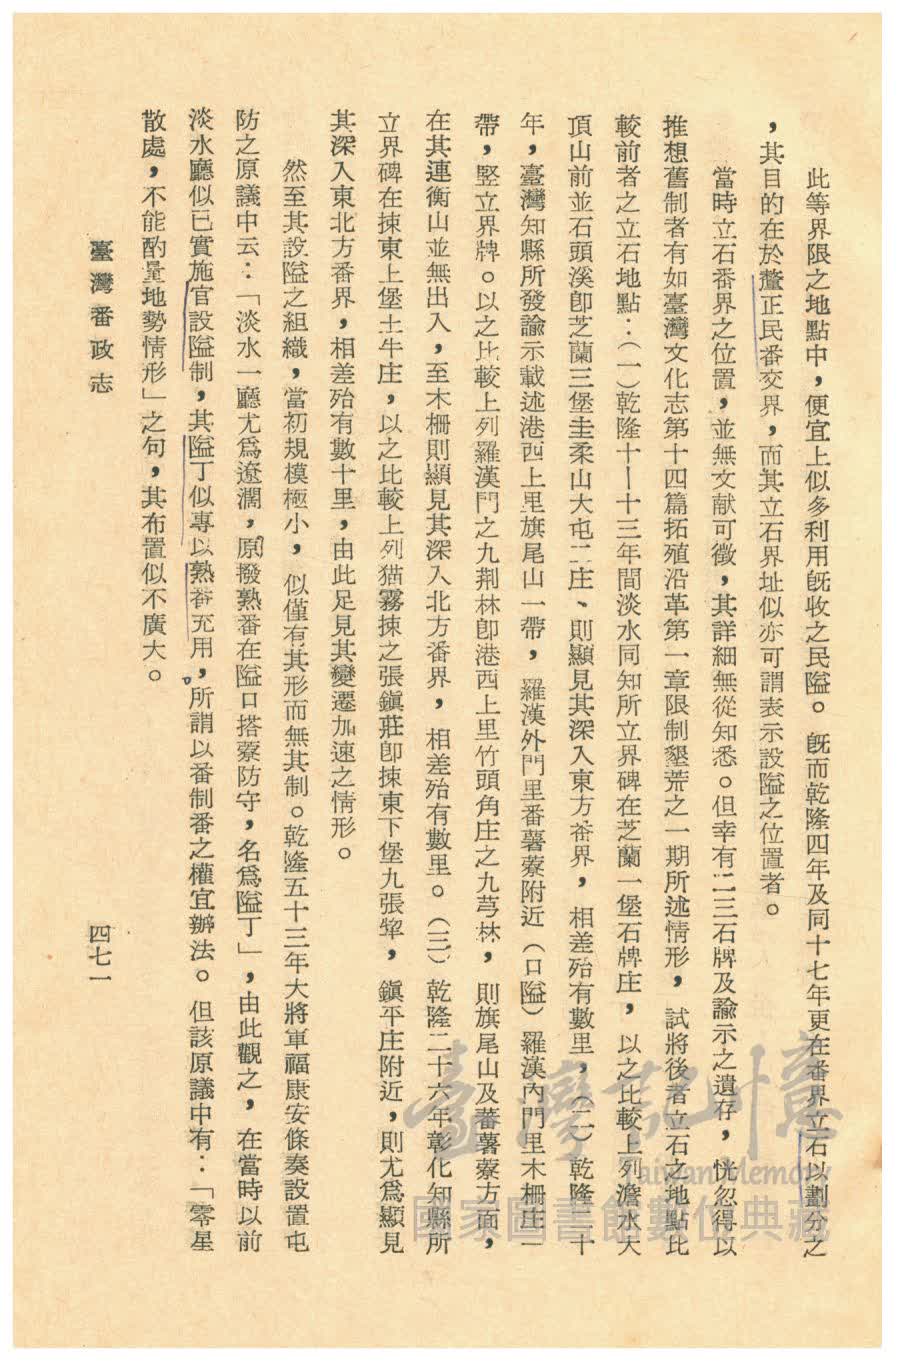 此等界限之地點中，便宜上似多利用旣收之民隘。旣而乾隆四年及同十七年更在番界立石以劃分之
，其目的在於釐正民番交界，而其立石界址似亦可謂表示設隘之位置者。
當時立石番界之位置，並無文献可徵，其詳細無從知悉。但幸有二三石牌及諭示之遺存，恍忽得以
推想舊制者有如臺灣文化志第十四篇拓殖沿革第一章限制墾荒之一期所述情形，試將後者立石之地點比
較前者之立石地點：（一）乾隆十—十三年間淡水同知所立界碑在芝蘭一堡石牌庄，以之比較上列澹水大
頂山前並石頭溪卽芝蘭三堡圭柔山大屯二庄、則顯見其深入東方番界，相差殆有數里，（二）乾隆二十
年，臺灣知縣所發諭示載述港西上里旗尾山一帶，羅漢外門里番薯藔附近（口隘）羅漢內門里木柵庄一
帶，竪立界牌。以之比較上列羅漢門之九荆林卽港西上里竹頭角庄之九芎林，則旗尾山及蕃薯藔方面，
在其連衡山並無出入，至木柵則顯見其深入北方番界，相差殆有數里。（三）乾隆二十六年彰化知縣所
立界碑在揀東上堡土牛庄，以之比較上列猫霧揀之張鎭莊卽揀東下堡九張犂，鎭平庄附近，則尤爲顯見
其深入東北方番界，相差殆有數十里，由此足見其變遷加速之情形。
然至其設隘之組織，當初規模極小，似僅有其形而無其制。乾隆五十三年大將軍福康安條奏設置屯
防之原議中云：「淡水一廳尤爲遼濶，原撥熟番在隘口搭藔防守，名爲隘丁」，由此觀之，在當時以前
淡水廳似已實施官設隘制，其隘丁似專以熟番充用，所謂以番制番之權宜辦法。但該原議中有：「零星
散處，不能酌量地勢情形」之句，其布置似不廣大。
臺灣番政志
四七一
臺灣記憶
Taiwan Memory
國家圖書館數位典藏